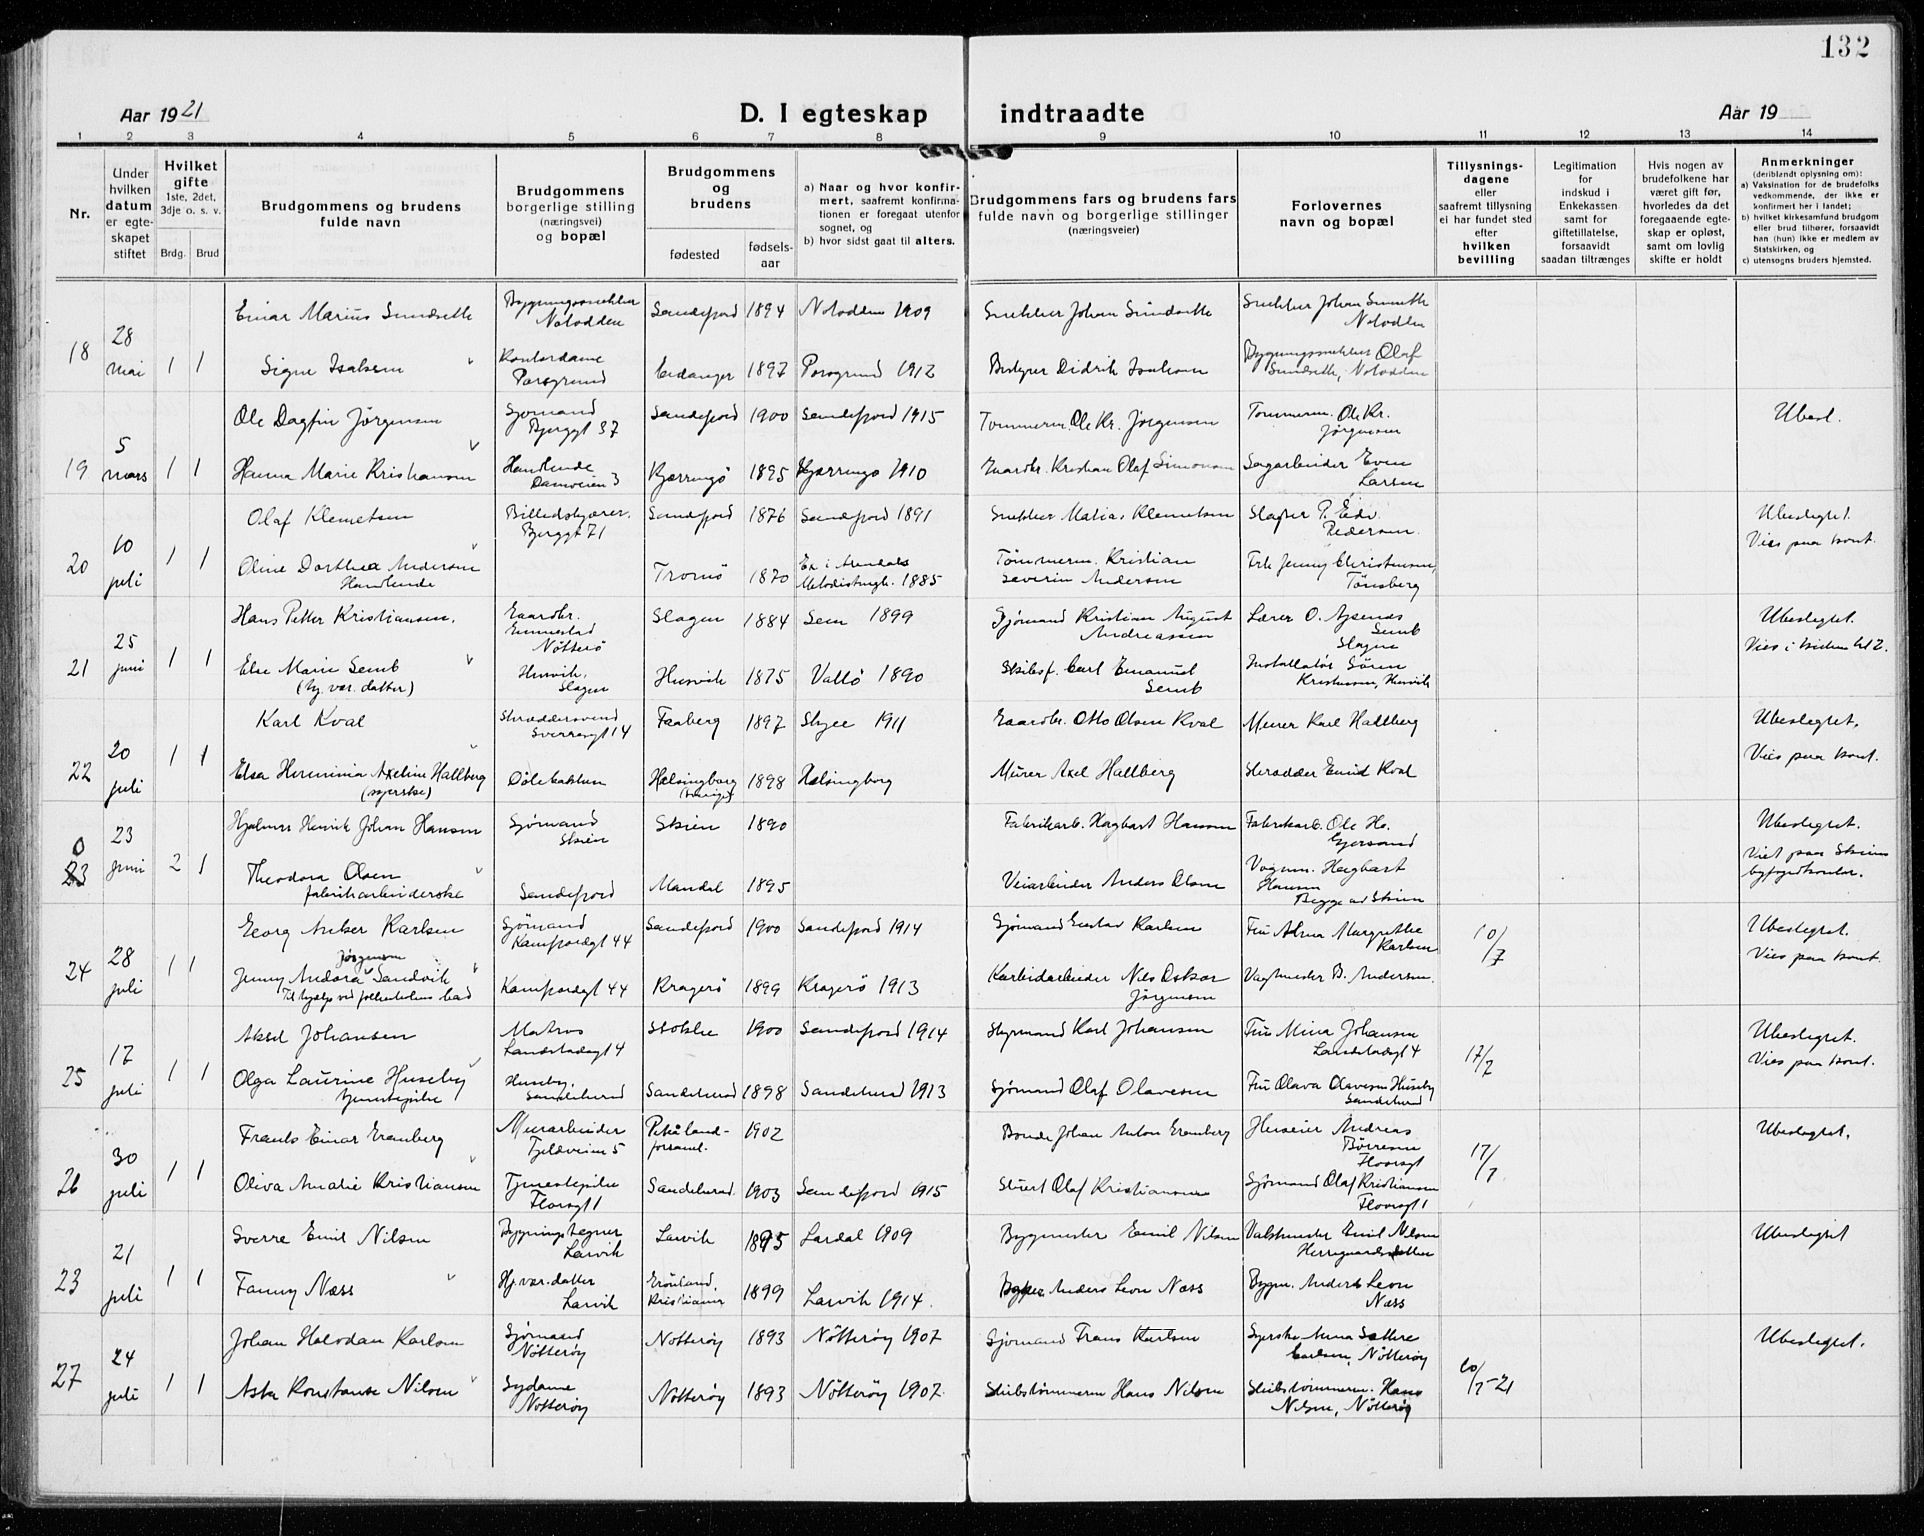 132
Aar 1921
D. I egteskap indtraadte
Aar 19
1 2 3 4 5 6 7 8 9 10 11 12 13 14
Nr.
Under
hvilken
datum
er egte-
skapet
stiftet
Hvilket
gifte
1ste, 2det,
3dje o. s. v.
Brdg. Brud
Brudgommens og brudens
fulde navn
Brudgommens
borgerlige stilling
(næringsvei)
og bopæl
Brudgommens
og
brudens
fødested
fødsels-
aar
a) Naar og hvor konfir-
mert, saafremt konfirma-
tionen er foregaat utenfor
sognet, og
b) hvor sidst gaat til alters.
Brudgommens fars og brudens fars
fulde navn og borgerlige stillinger
(næringsveier)
Forlovernes
navn og bopæl
Tillysnings-
dagene
eller
saafremt tillysning
ei har fundet sted
efter
hvilken
bevilling
Legitimation
for
indskud i
Enkekassen
samt for
giftetillatelse,
forsaavidt
saadan tiltrænges
Hvis nogen av
brudefolkene har
været gift før,
hvorledes da det
foregaaende egte-
skap er opløst,
samt om lovlig
skifte er holdt
Anmerkninger
(deriblandt oplysning om):
a) Vaksination for de brudefolks
vedkommende, der ikke er
konfirmert her i landet;
b) hvilket kirkesamfund brudgom
eller brud tilhører, forsaavidt
han (hun) ikke er medlem av
Statskirken, og
c) utensogns bruders hjemsted.
18
28
mai
1 1
Einar Marius Sundseth
Notodden
Sandefjord 1894 Notodden 1909
Snekker Johan Sundseth
Snekker Johan Sundseth
Notodden
Signe Isaksen
Kontordame
Porsgrund
Eidanger 1897 Porsgrund 1912
Bestyrer Didrik Isaksen
Bygningssnekker Olaf
Sundseth, Notodden
19
5
mars
1 1
Ole Dagfin Jörgensen
Sjömand
Bjerggt 37
Sandefjord 1900 Sandefjord 1915
Tömmerm. Ole Kr. Jörgensen
Tömmerm. Ole Kr.
Jörgensen
Ubesl.
Hanna Marie Kristiansen
Damveien 3
Kjærringö 1895 Kjærringö 1910
Gaardbr. Kristian Olaf Simonsen
Sagarbeider Even
Larsen
20
10
juli
1 1
Olaf Klemetsen
Billedskjærer.
Bjerggt 71
Sandefjord 1876 Sandefjord 1891
Snekker Matias Klemetsen
Pedersen.
Ubeslegtet.
Vies paa kont.
Oline Dorthea Andersen
Handlende
Tromö 1870
Ex i Arendals
Metodistmgh. 1885
Tömmerm. Kristian
Severin Andersen
Frk Jenny Christensen,
Tönsberg
21
25
juni
1 1
Hans Petter Kristiansen.
Gaardbr.
Nötterö
Slagen 1884 Sem 1899
Sjömand Kristian August
Andreassen
Lærer O. Ajsends
Semb
Slagen
Ubeslegtet.
Vies i kirken kl 2.
Else Marie Semb
(hj. vær. datter)
Husvik,
Slagen
Husvik 1875 Vallö 1890
Skibsf. Carl Emanuel
Semb
Installatör Sören
Kristensen, Husvik
22
20
juli
1 1
Karl Kval
Skræddersvend
Sverresgt 14
Faaberg 1897 1911
Gaardbr. Otto Olsen Kval
Murer Karl Hallberg
Ubeslegtet.
Vies paa kont.
Elsa Herminia Axeline Hallberg
(syerske)
Dölebakken
Helsingborg
(Sverige)
1898 Helsingborg
Murer Axel Hallberg
Skrædder Emil Kval
0
23
23
juni
2 1
Hjalmar Henrik Johan Hansen
Sjömand
Skien
Skien 1890
Fabrikarb. Hagbart Hansen
Fabrikarb. Ole H.
Gjersund
Ubeslegtet.
Viet paa Skiens
byfogedkontor.
Theodora Olsen
fabrikarbeiderske
Sandefjord
Mandal 1895
Veiarbeider Anders Olsen
Vognm. Hagbart
Hansen
Begge av Skien
24
28
juli
1 1
Georg Anker Karlsen
Sjömand
Kampordgt 44
Sandefjord 1900 Sandefjord 1914
Sjömand Gustav Karlsen
Fru Alma Margrethe
Karlsen
10/7
Ubeslegtet.
Vies paa kont.
Jörgensen
Jenny Andora Sandvik
Til hjælp ved folkeskolens bad
Kampordgt 44
Kragerö 1899 Kragerö 1913
Karbidarbeider Nils Oskar
Jörgensen
Vagtmester B. Andersen.
25
17
juli
1 1
Aksel Johansen
Matros
Landstadsgt 4
Stokke 1900 Sandefjord 1914
Styrmand Karl Johansen
Fru Mina Johansen
Landstadsgt 4
17/7
Ubeslegtet.
Vies paa kont.
Olga Laurine Huseby
tjenestepike
Huseby,
Sandeherred
Sandeherred 1898 Sandeherred 1913
Sjömand Olaf Olavesen
Fru Olava Olavesen Huseby
Sandeherred
26
30
juli
1 1
Frants Einar Granberg
Murarbeider
Fjeldveien 5
forsaml.
1902
Bonde Johan Anton Granberg
Huseier Andreas
Börresen
Floorsgt
17/7
Ubeslegtet.
Oliva Amalie Kristiansen
Tjenestepike
Floorsgt 1
Sandeherred 1903 Sandefjord 1915
Stuert Olaf Kristiansen
Sjömand Olaf Kristiansen
Floorsgt 1
23
21
juli
1 1
Sverre Emil Nilsen
Bygningstegner
Larvik
Larvik 1895 Lardal 1909
Bygmester Emil Nilsen
Valsemester Emil Nilsen
Herregaardsbakken
Ubeslegtet
Fanny Næss
Hj. vær. datter
Larvik
Grönland,
Kristiania
1899 Larvik 1914.
Anders Leon Næss
Bygm. Anders Leon
Næss
27
24
juli
1 1
Johan Halvdan Karlsen
Sjömand
Nötteröy
Nötteröy 1893 Nötteröy 1907
Sjömand Frans Karlsen
Syerske Anna Sofie
Carlsen, Nötteröy
10/7-21
Ubeslegtet.
Asta Konstanse Nilsen
Sydame
Nötteröy
Nötteröy 1893 Nötteröy 1907
Skibstömmerm Hans Nilsen
Skibstömmerm. Hans
Nilsen, Nötteröy